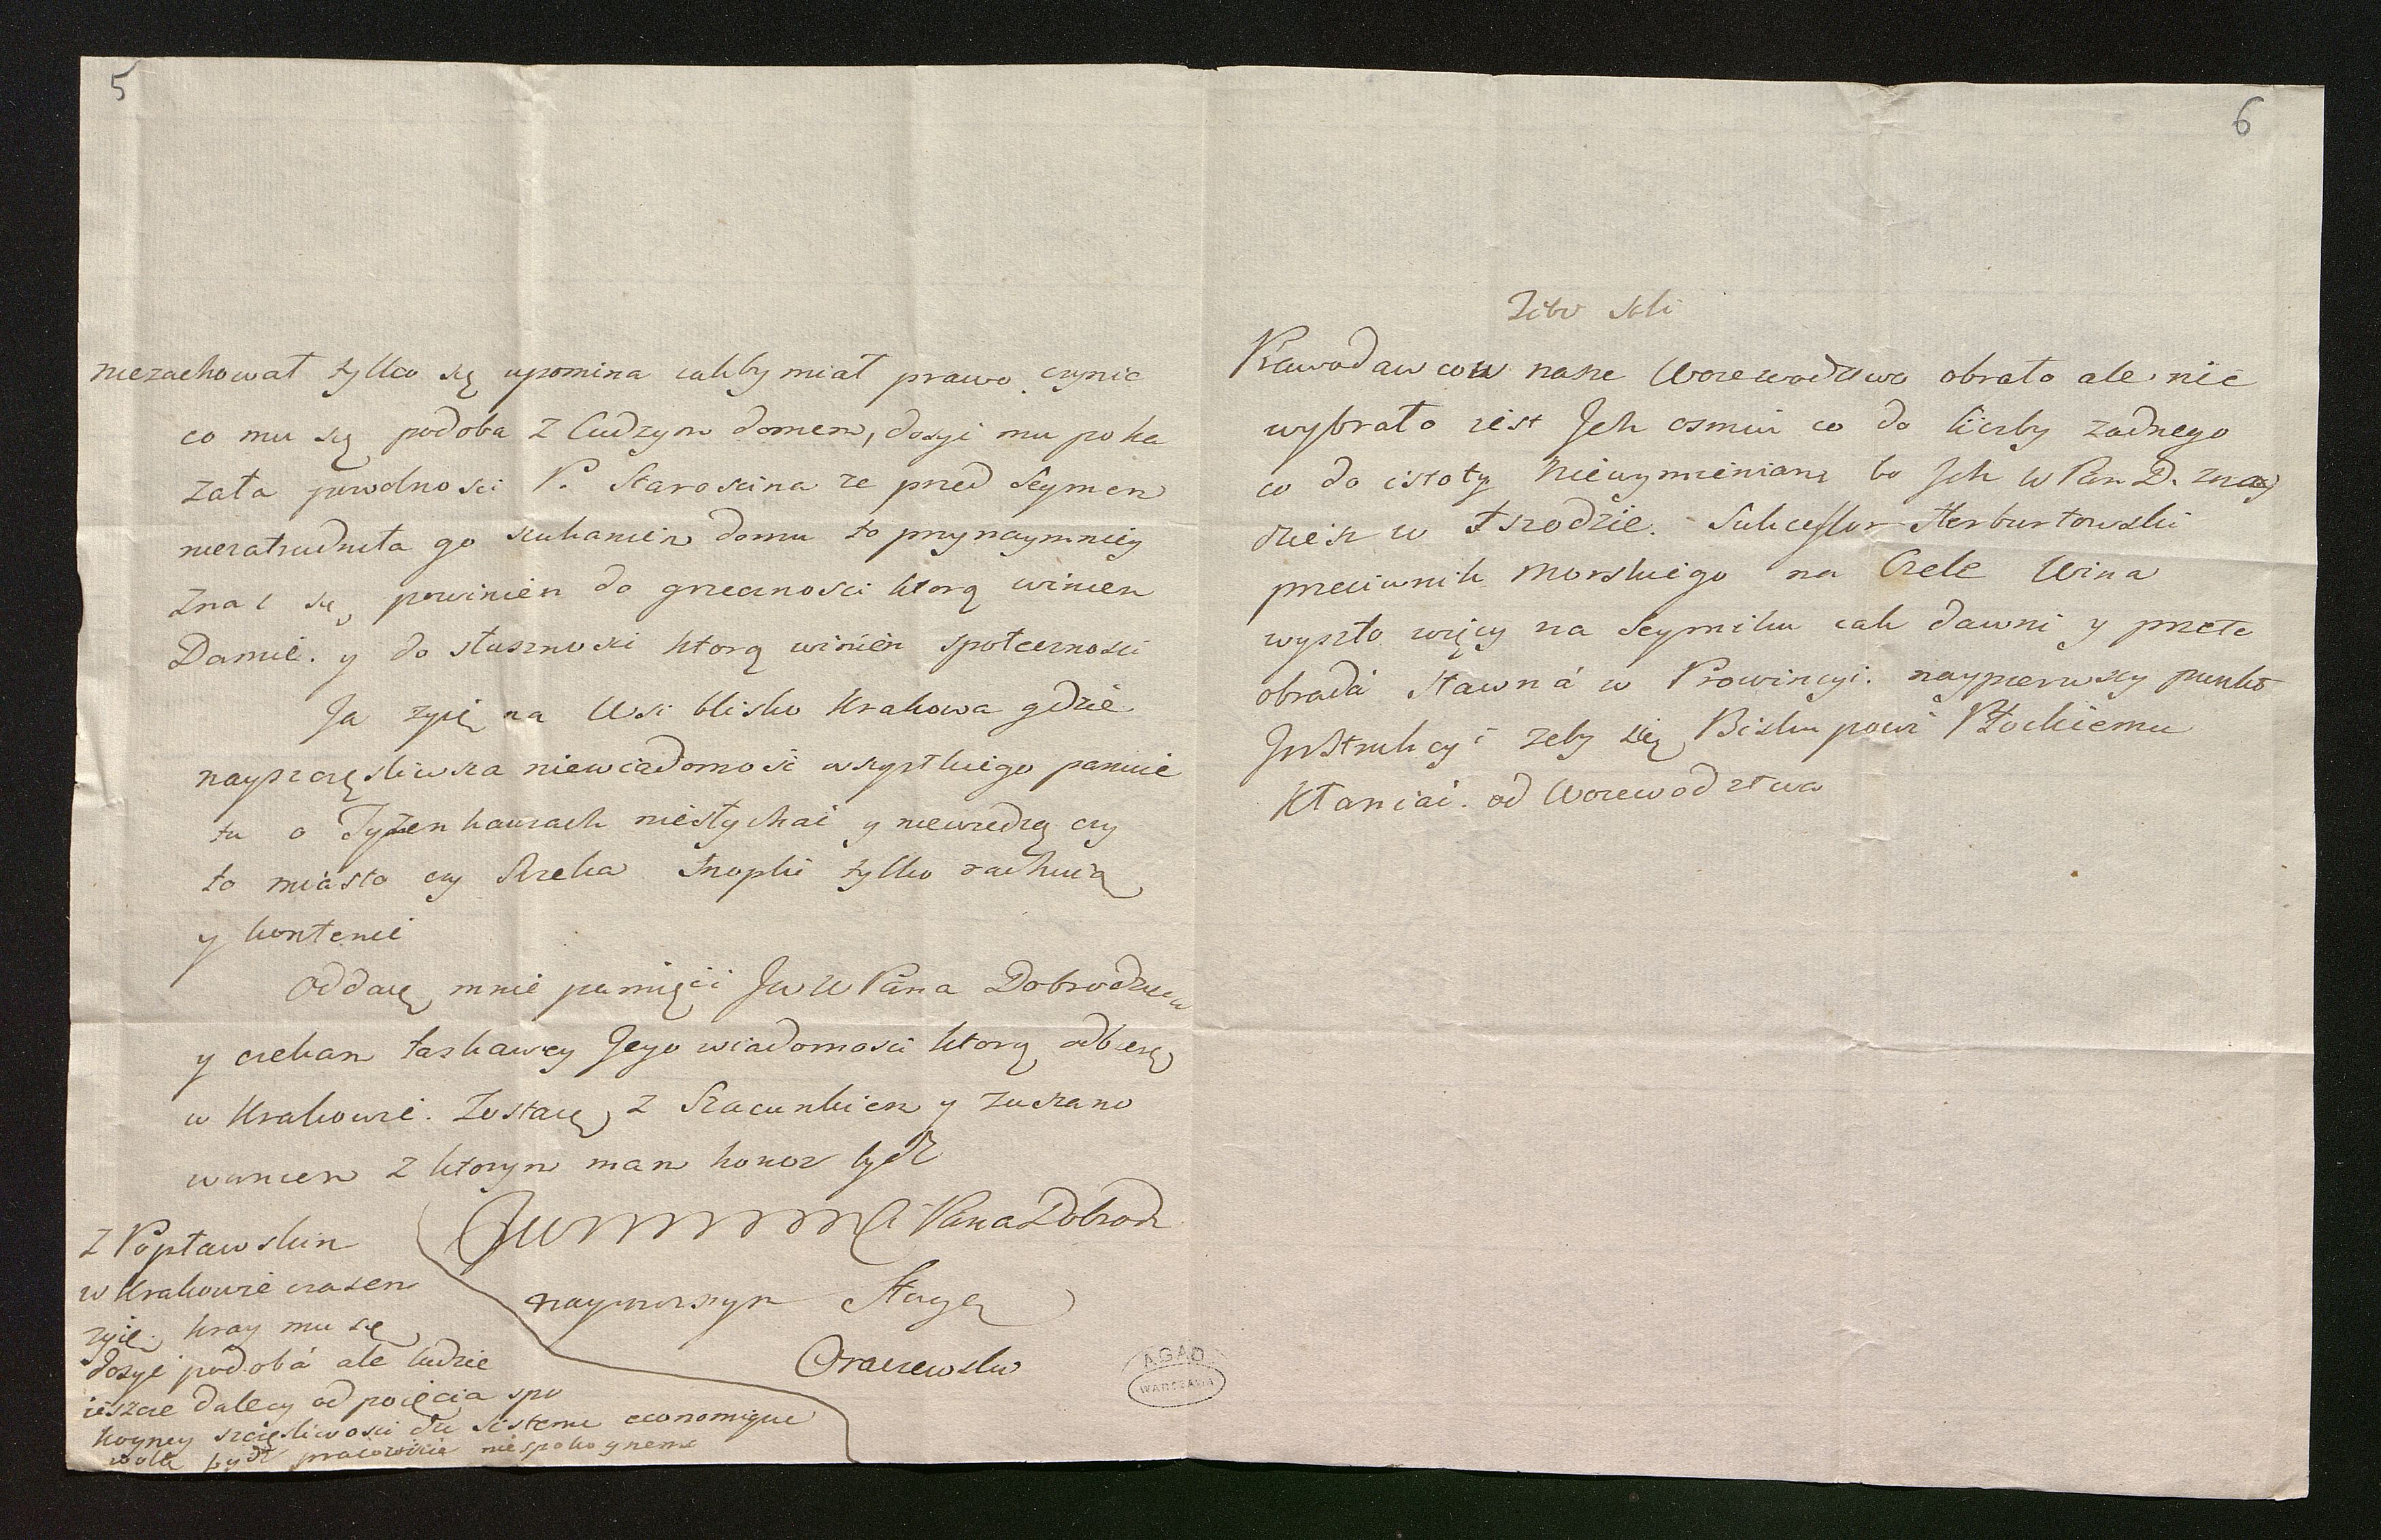 5
niezachował tylko się upomina iakby miał prawo czynic
co mu się podoba z Cudzym domem, dosyć mu poka
zała powolnosci P. Staroscina ze przed Seymem
niezatrudniła go szukaniem domu to przynaymniey
znac się powinien do grzecznosci ktorą winien
Damie. y do słusznosci ktorą winien społecznosci
Ja zyię na Wsi blisko Krakowa gdzie
nayszczęsliwsza niewiadomosć wszystkiego panuie
tu o Tyzenhauzach niesłychać y niewiedzą czy
to miasto czy Rzeka snopki tylko rachuią
y kontenci
Oddaię mnie pamięci JW W Pana Dobrodzieia
y czekam łaskawey Jego wiadomosci ktorą odbierę
w Krakowie. Zostaię z Szacunkiem y Zuszano
waniem z ktorym mam honor bydź
Pana Dobrodz
nayniższym Sługą
Oraczewski
Z Popławskim
w Krakowie czasem
zyię. kray mu się
dosyć podobá ale ludzie
ieszcze dalecy od poięcia spo
koyney szczęsliwosci du sisteme economique
wolą bydź pracowicie niespokoynemi
AGAD
WARSZAWA
6
Prawodawcow nasze Woiewodztwo obrało ale nie
wybrało iest Jch osmiu co do liczby zadnego
co do istoty Niewymieniam bo Jch W Pan D. znay
dziesz w srodzie. Sukcessor Herburtowski
przeciwnik Morskiego na Czele Wina
wyszło więcy na Seymiku iak dawni y przeto
obradá sławná w Prowincyi. naypierwszy punkt
Jnstrukcyi zeby się Biskupowi Płockiemu
Kłaniać. od Woiewodztwa